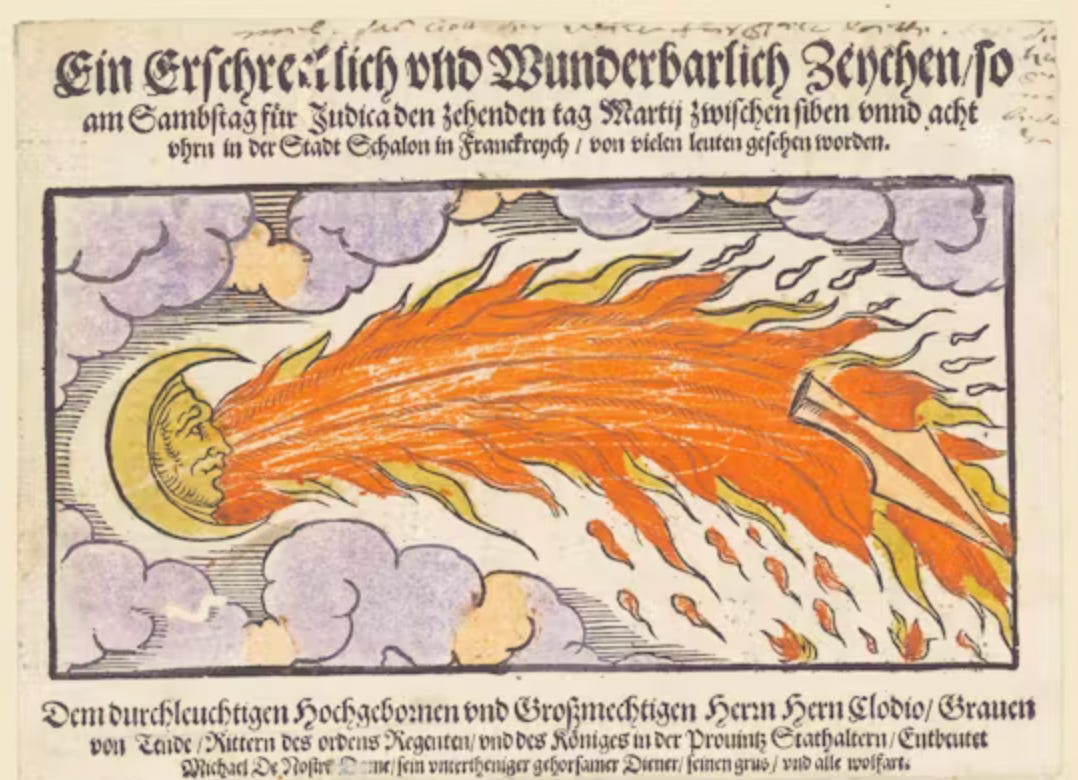 Ein Erschrecklich vnd Wunderbarlich Zeychen/so
am Sambstag für Judica den zehenden tag Martij zwischen siben vnnd acht
vhrn in der Stadt Schalon in Franckreych / von vielen leuten gesehen worden.
Dem durchleuchtigen Hochgebornen vnd Großmechtigen Herrn Hern Clodio/ Grauen
von Tende /Rittern des ordens Regenten/ vnd des Königes in der Prouintz Stathaltern/ Entbeutet
Michael De Nostre Dame/ sein vntertheniger gehorsamer Diener/ seinen grus / vnd alle wolfart.